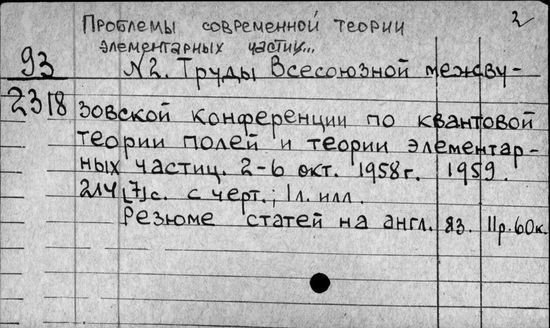 2
Проблемы современной теории
элементарных частиц...
93
N2. Труды Всесоюзной межву-
2318
зовской конференции по квантовой
теории полей и теории элементар-
ных частиц. 2-6 окт. 1958г. 1959.
214 [7] с. с черт.; 1 л. илл.
Резюме статей на англ. яз. 11р.60к.